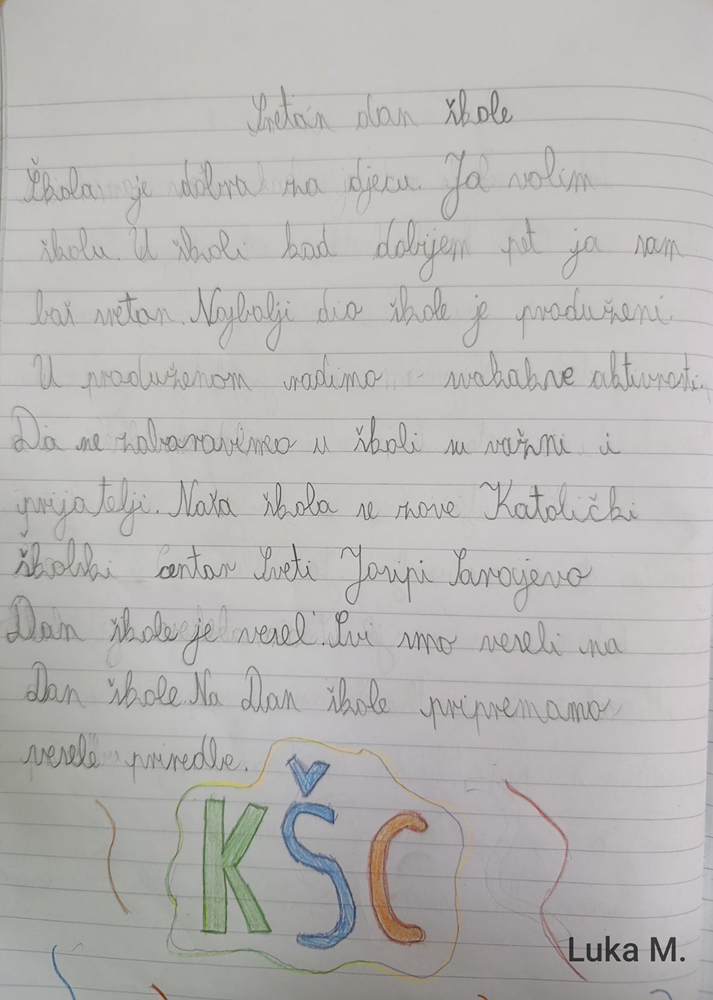 Sretan dan škole
Škola je dobra za djecu. Ja volim
školu. U školi kad dobijem pet ja sam
baš sretan. Najbolji dio škole je produženi.
U produženom radimo svakakve aktivnosti.
Da ne zaboravimo u školi su važni i
prijatelji. Naša škola se zove Katolički
školski centar Sveti Josip Sarajevo
Dan škole je vesel. Svi smo veseli na
Dan škole. Na Dan škole pripremamo
vesele priredbe.
KŠC
Luka M.